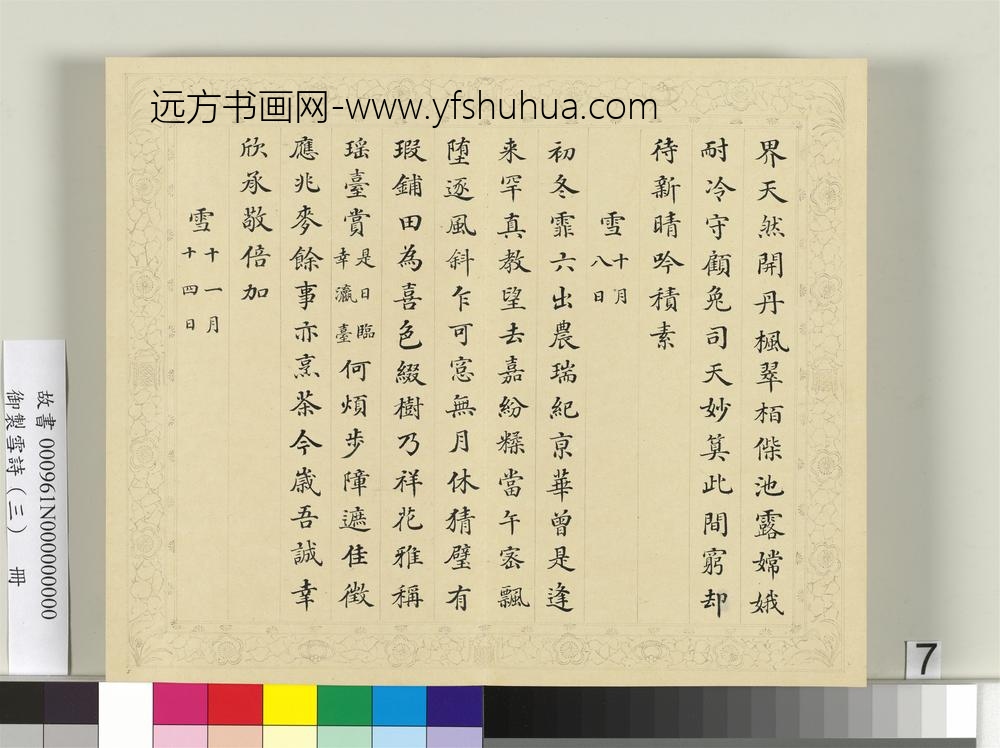 远方书画网-www.yfshuhua.com
界天然開丹楓翠栢傑池露嫦娥
耐冷守顧兔司天妙筭此間窮却
待新晴吟積素
雪十月八日
初冬霏六出農瑞紀京華曾是逢
来罕真教望去嘉紛糅當午密飄
墮逐風斜乍可窓無月休猜璧有
瑕鋪田為喜色綴樹乃祥花雅稱
瑶臺賞是日臨幸瀛臺何煩步障遮佳徴
應兆麥餘事亦烹茶今嵗吾誠幸
欣承敬倍加
雪十一月十四日
故書 000961N000000000
御製雪詩(三) 冊
7